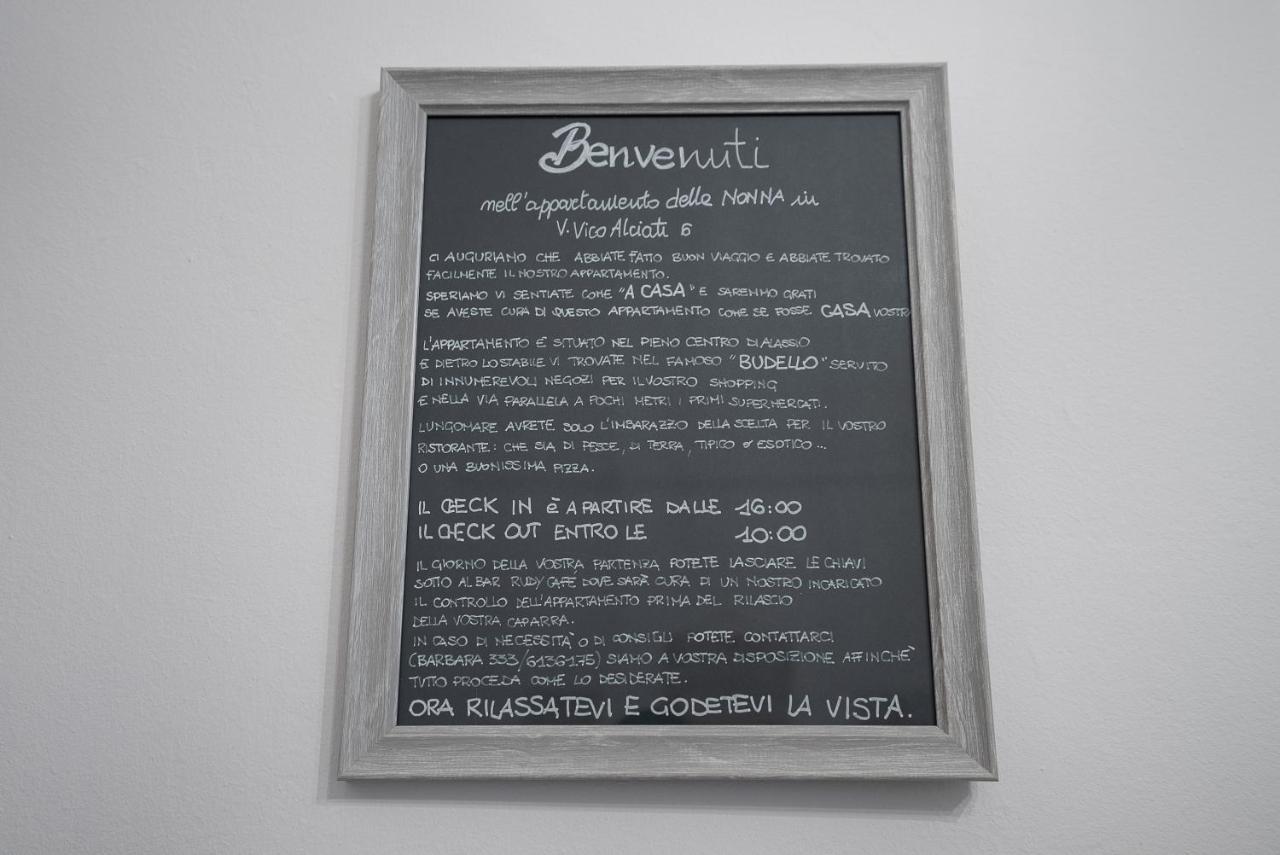 Benvenuti
nell'appartamento della NONNA in
V. Vico Alciati 6
CI AUGURIAMO CHE ABBIATE FATTO BUON VIAGGIO E ABBIATE TROVATO
FACILMENTE IL NOSTRO APPARTAMENTO.
SPERIAMO VI SENTIATE COME "A CASA" E SAREMMO GRATI
SE AVESTE CURA DI QUESTO APPARTAMENTO COME SE FOSSE CASA VOSTR
L'APPARTAMENTO E' SITUATO NEL PIENO CENTRO DI ALASSIO
E DIETRO LO STABILE VI TROVATE NEL FAMOSO "BUDELLO" SERVITO
DI INNUMEREVOLI NEGOZI PER IL VOSTRO SHOPPING
E NELLA VIA PARALLELA A POCHI METRI I PRIMI SUPERMERCATI.
LUNGOMARE AVRETE SOLO L'IMBARAZZO DELLA SCELTA PER IL VOSTRO
RISTORANTE: CHE SIA DI PESCE, DI TERRA, TIPICO o ESOTICO ...
O UNA BUONISSIMA PIZZA.
IL CHECK IN è A PARTIRE DALLE 16:00
IL CHECK OUT ENTRO LE 10:00
IL GIORNO DELLA VOSTRA PARTENZA POTETE LASCIARE LE CHIAVI
SOTTO AL BAR RUDY CAFÉ DOVE SARÀ CURA DI UN NOSTRO INCARICATO
IL CONTROLLO DELL'APPARTAMENTO PRIMA DEL RILASCIO
DELLA VOSTRA CAPARRA.
IN CASO DI NECESSITA' O DI CONSIGLI POTETE CONTATTARCI
(BARBARA 333/6136175) SIAMO A VOSTRA DISPOSIZIONE AFFINCHE'
TUTTO PROCEDA COME LO DESIDERATE.
ORA RILASSATEVI E GODETEVI LA VISTA.